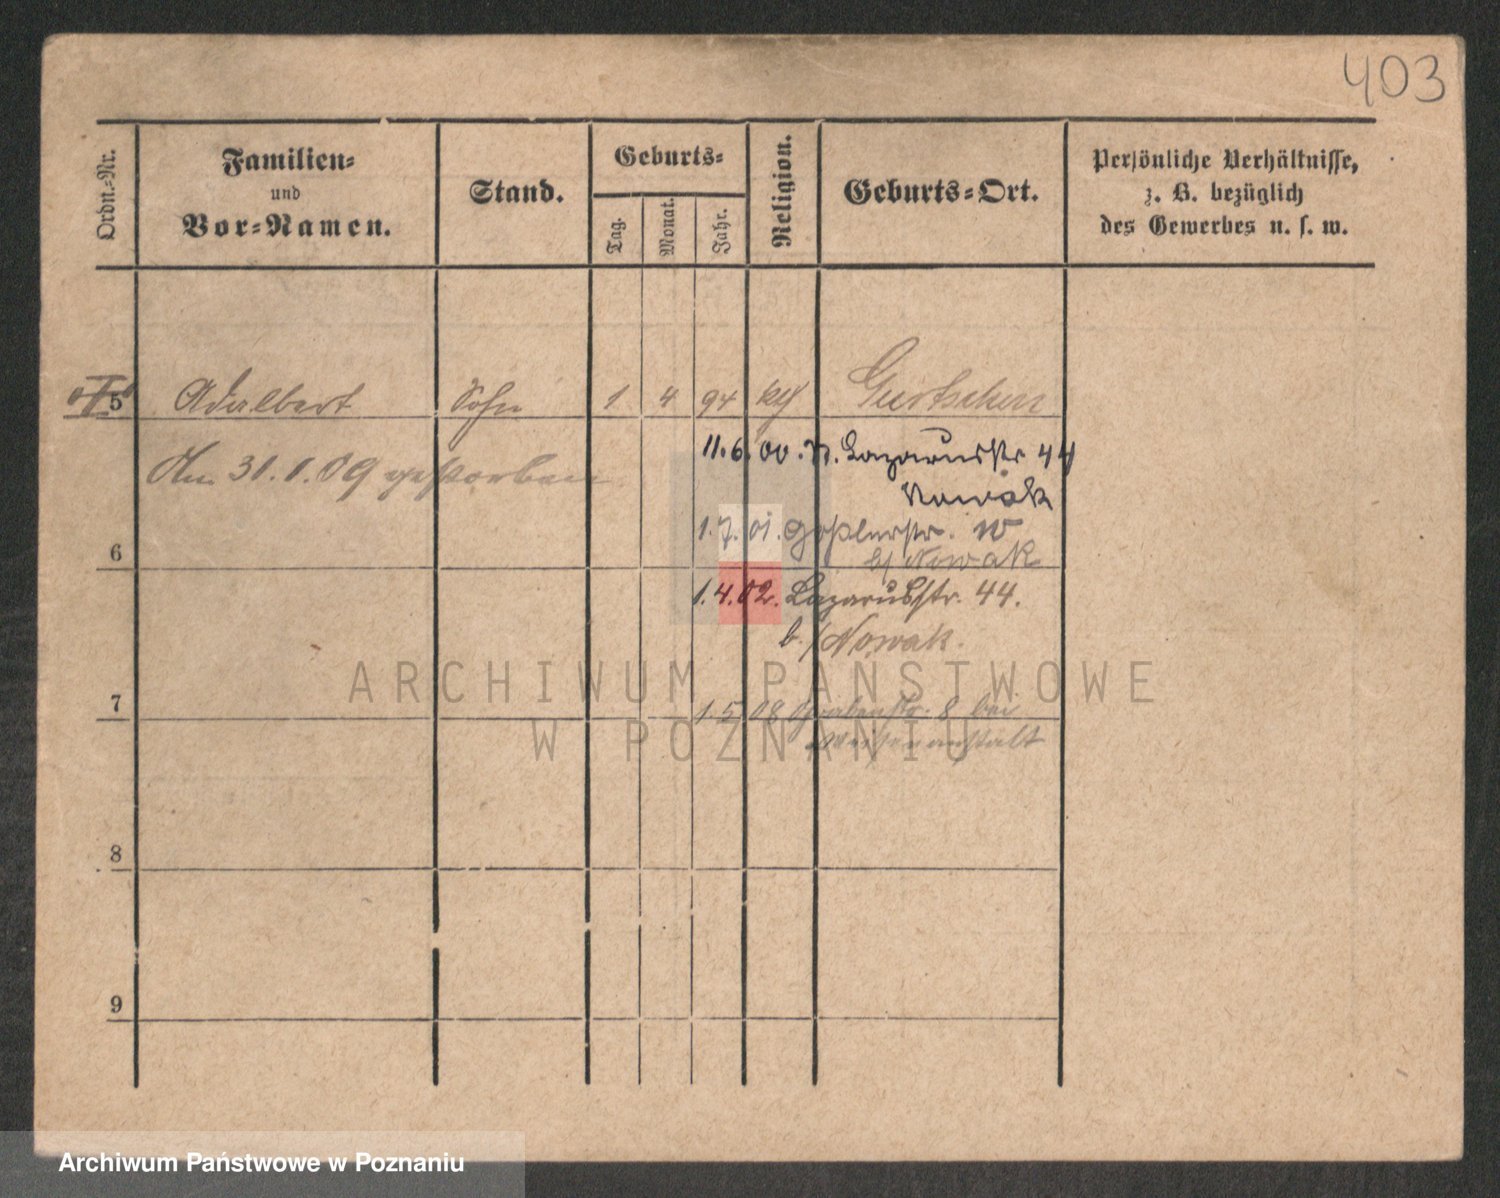 403
Ordn.-Nr.
Familien-
und
Vor-Namen.
Stand.
Geburts-
Tag.
Monat.
Jahr.
Religion.
Geburts-Ort.
Persönliche Verhältnisse,
z. B. bezüglich
des Gewerbes u. s. w.
5 Adalbert Sohn 1 4 94 Gurtschin
11.6.00. Lazarusstr 44
Nowak
Am 31.1.09 gestorben
1.7.01. Goßlerstr.
b/ Nowak
6
1.4.02. Lazarusstr. 44.
b/ Nowak.
ARCHIWUM PAŃSTWOWE
W POZNANIU
7
1.5.08 Grabenstr. 8 bei
Waisenanstalt
8
9
Archiwum Państwowe w Poznaniu